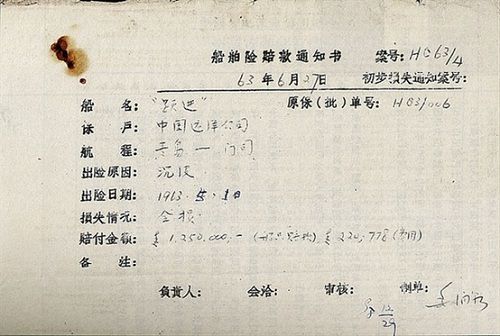 船舶险赔款通知书 案号：HC63/4
63年6月27日 初步损失通知案号：
船名："跃进" 原保（批）单号：HC3/006
保户：中国远洋公司
航程：青岛—门司
出险原因：沉没
出险日期：1963.5.1日
损失情况：全损
赔付金额：£1,250,000,-（船舶赔款）£220,778（费用）
备注：
负责人： 会洽： 审核： 制单：
12/29